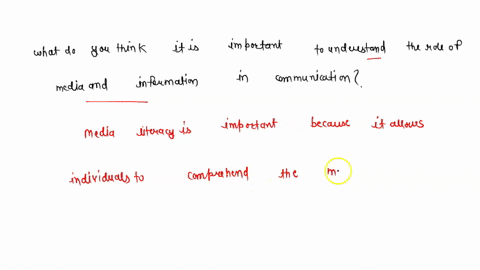 what do you think it is important to understand the role of
media and information in communication?
Media literacy is important because it allows
individuals to comprehend the m